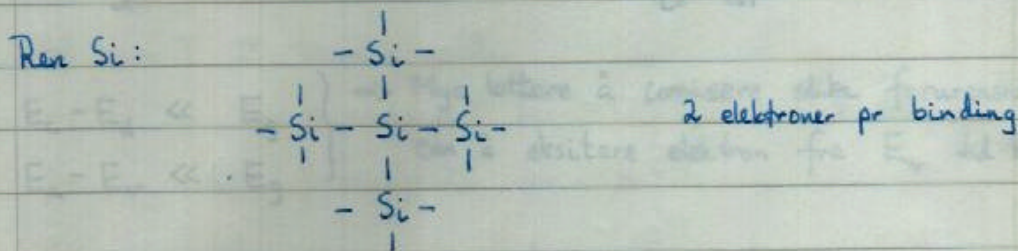 Ren Si:
- Si -
- Si - Si - Si -
2 elektroner pr binding
- Si -